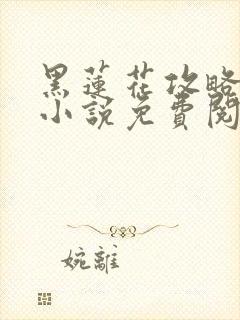 黑蓮花攻略
小說免費閱
婉離